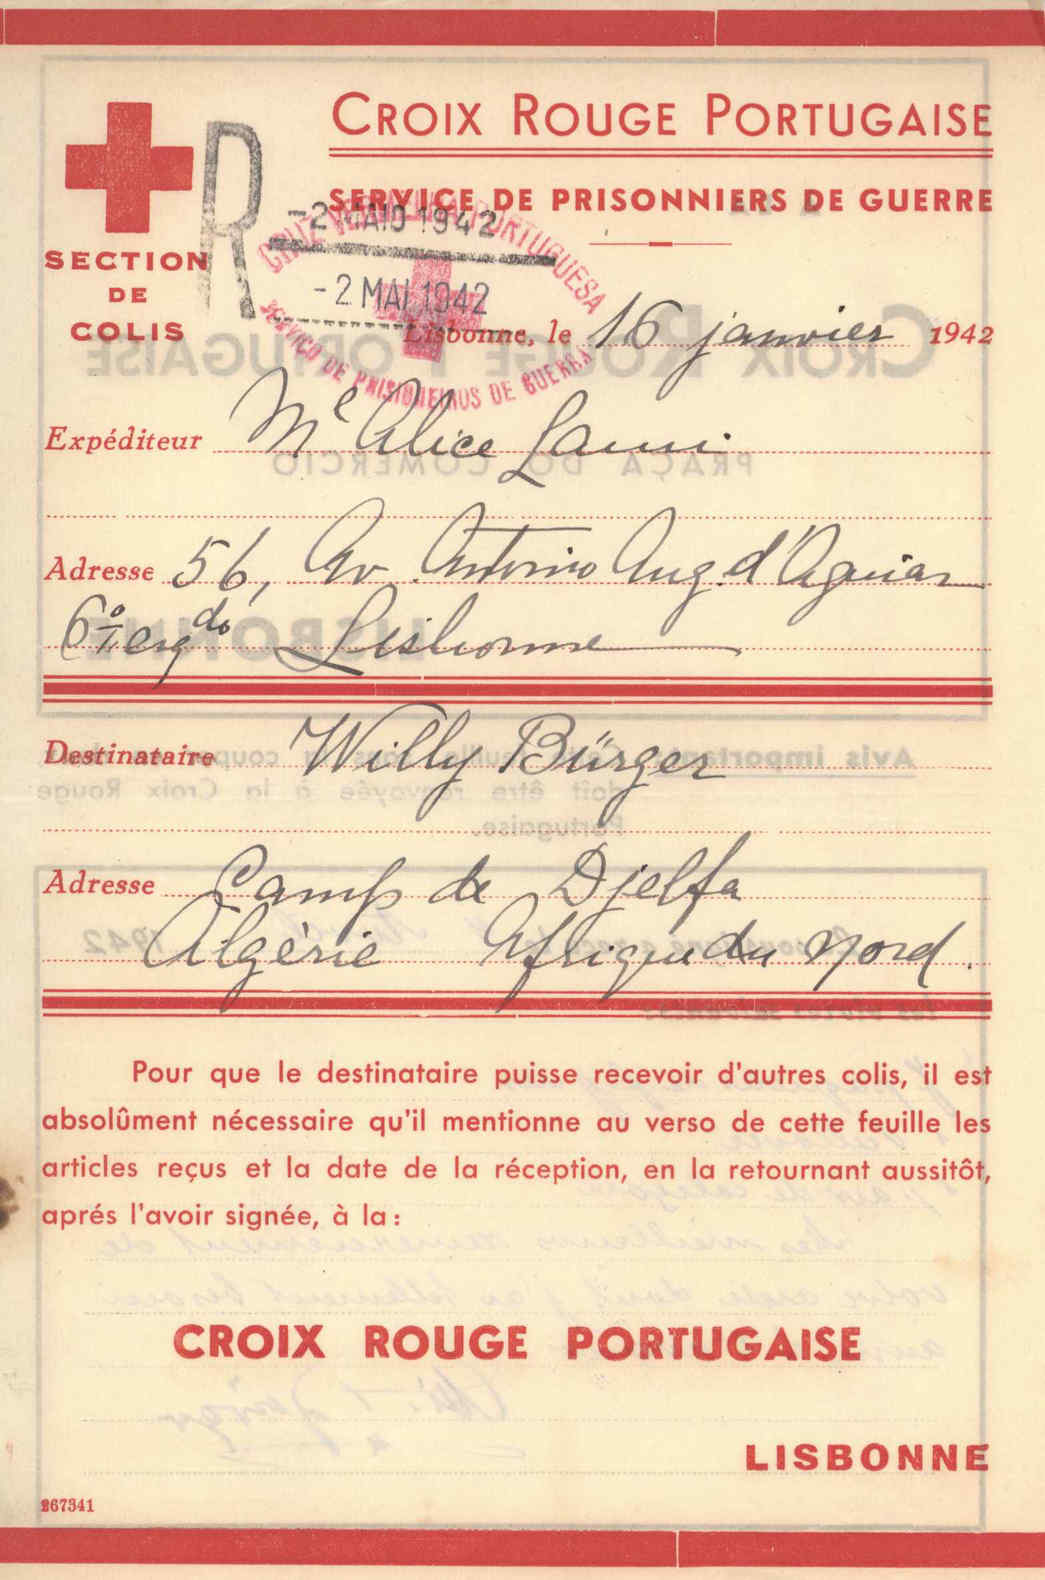 CROIX ROUGE PORTUGAISE
SERVICE DE PRISONNIERS DE GUERRE
SECTION
DE
COLIS
R
-2 MAIO 1942
-2 MAI 1942
CRUZ VERMELHA PORTUGUESA
SERVIÇO DE PRISIONEIROS DE GUERRA
Lisbonne, le 16 janvier 1942
Expéditeur Me Alice Lanni
Adresse 56, Av. Antonio Aug. d'Aguiar
6º esqdo Lisbonne
Destinataire Willy Bürger
Adresse Camp de Djelfa
Algérie Afrique du Nord.
Pour que le destinataire puisse recevoir d'autres colis, il est
absolûment nécessaire qu'il mentionne au verso de cette feuille les
articles reçus et la date de la réception, en la retournant aussitôt,
aprés l'avoir signée, à la:
CROIX ROUGE PORTUGAISE
LISBONNE
267341